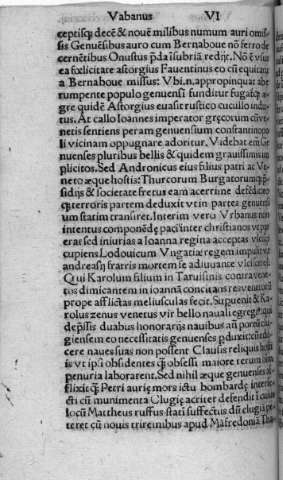 Vrbanus VI
ceptisq; decē & nouē milibus numum auri omis
sis Genuēsibus auro cum Bernaboue nō ferro de
cernētibus Onustus p̄da īsubriā redijt. Nō ē vsus
ea fœlicitate astorgius Fauentinus eo cū equitatu
a Bernaboue missus: Vbi.n.appropinquat ab
rumpente populo genuensi funditur fugaſq;
gre quidē Astorgius euasit rustico cucullo indu
tus. At callo Ioannes imperator grecorum cū ve
netis sentiens peram genuensium constantinopo
li vicinam oppugnare adoritur. Videbat em̄ ge
nuenses pluribus bellis & quidem grauissimis im
plicitos. Sed Andronicus eius filius patri ac Ve
neto æque hostis: Thurcorum Burgatorumq; p̄
sidijs & societate fretus eam acerrime defēdit
q; terroris partem deduxit vt in partes genuensi
um statim transiret. Interim vero Vrbanus non
intentus componēde paci inter christianos vt
eras sed iniurias a Ioanna regina acceptas vlcisci
cupiens Lodouicum Vngatiæ regem impulit vt
andreasij fratris mortem se adiuuante vlcisceret
Qui Karolum filium in Taruisinis contra vene
tos dimicantem in ioannā concitans res venetorū
prope afflictas meliusculas fecit. Supuenit & Ka
rolus zenus venetus vir bello nauali egregius q
dep̄ssis duabus honorarijs nauibus an̄ portū clu
giensem eo necessitatis genuenses p̄duxit
cere naues suas non possent Clausis reliquis hostis
is vt ipsi obsidentes q̄ obsessi maiore rerum oim
penuria laborarent. Sed nihil æque genuenses
flixit q̄ Petri auriæ mors ictu bombardę interfe
cti cū munimenta Clugię acriter defendit
locū Mattheus ruffus stati suffectus dū clugiā pe
teret cū nouis triremibus apud Mafredoniā